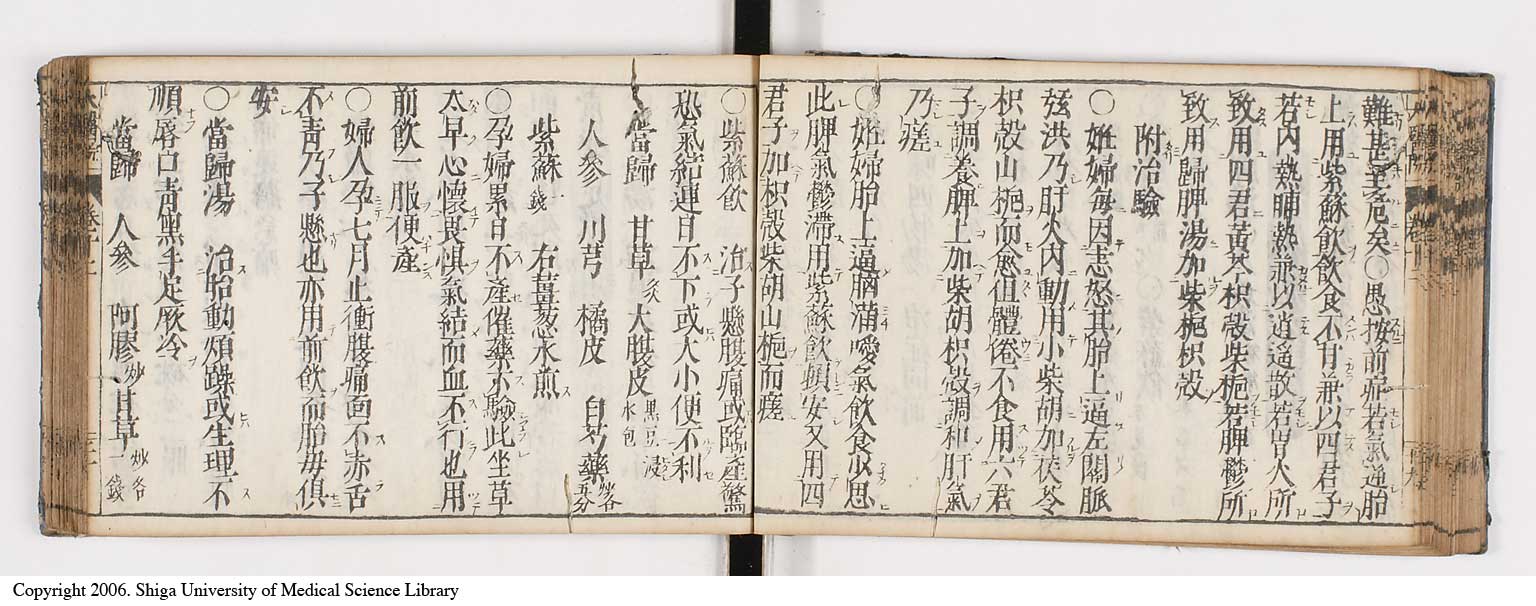 難甚至危矣○愚按前症若氣逼胎
上用紫蘇飲飲食不甘兼以四君子
若內熱晡熱兼以逍遙散若胃火所
致用四君黃芩枳殼柴梔若脾鬱所
致用歸脾湯加柴梔枳殼
附治驗
○妊婦每因恚怒其胎上逼左關脈
弦洪乃肝火內動用小柴胡加茯苓
枳殼山梔而愈但體倦不食用六君
子調養脾上加柴胡枳殼調和肝氣
乃瘥
○妊婦胎上逼胸滿噯氣飲食少思
此脾氣鬱滯用紫蘇飲頓安又用四
君子加枳殼柴胡山梔而瘥
○紫蘇飲 治子懸腹痛或臨產驚
恐氣結連日不下或大小便不利
當歸 甘草炙 大腹皮黑豆浸水包
人參 川芎 橘皮 白芍藥各五分
紫蘇錢 右薑葱水煎
○孕婦累日不產催藥不驗此坐草
太早心懷畏惧氣結而血不行也用
前飲一服便產
○婦人孕七月上衝腹痛面不赤舌
不青乃子懸也亦用前飲而胎母俱
安
○當歸湯 治胎動煩躁或生理不
順唇口青黑手足厥冷
當歸 人參 阿膠炒 甘草炒各錢
Copyright 2006. Shiga University of Medical Science Library